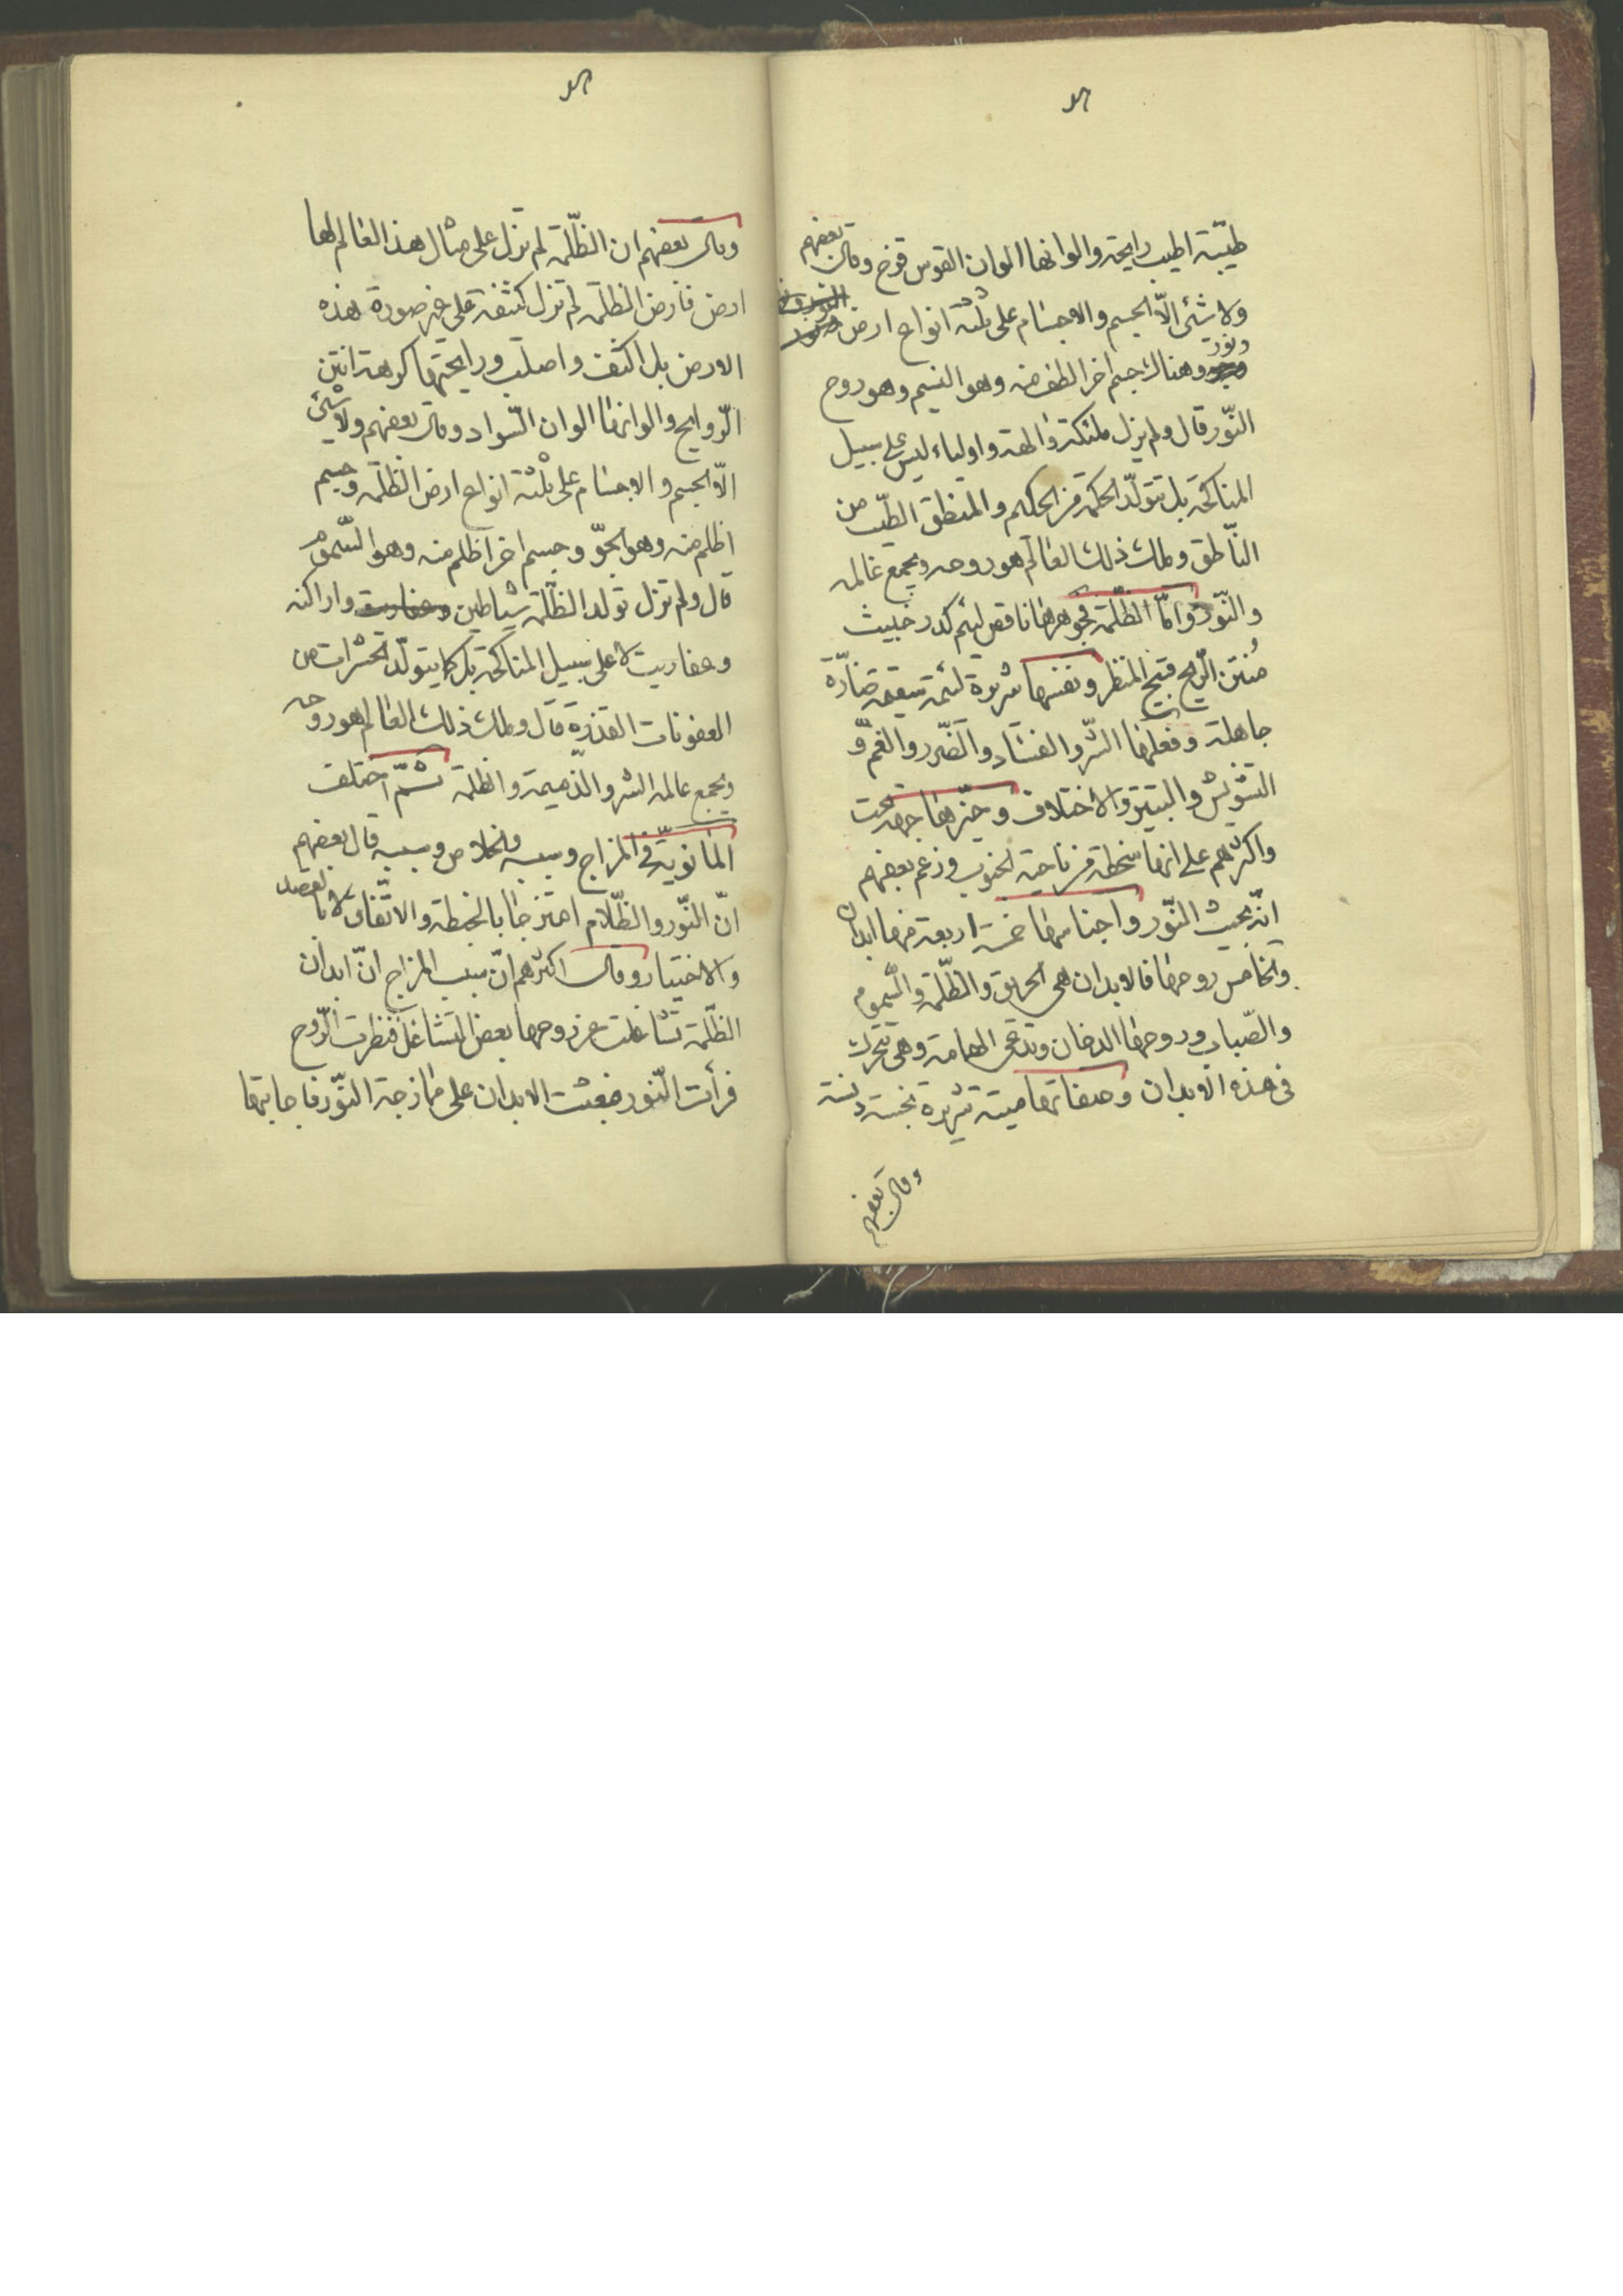 طيّبة اطيب رايحة والوانها الوان القوس قزح وقال بعضهم
ولا شئ الّا الجسم والاجسام على ثلثة انواع ارض
ونور وهناك جسم اخر الطف منه وهو النسيم وهو روح
النّور قال ولم يزل ملئكة والهة واولياء ليس على سبيل
المناكحة بل تتولّد الحكمة من الحكيم والمنطق الطيّب من
النّاطق وملك ذلك العالم هو روحه ويجمع عالمه
والنّور وامّا الظّلمة فجوهرها ناقص لئيم كدر خبيث
مُنتن الرّيح قبيح المنظر ونفسها شريرة لئيمة سفيهة ضارّة
جاهلة وفعلها الشّر والفساد والضّرر والغمّ و
التشويش والتبتير والاختلاف وحيّزها جهة تحت
واكثرهم على انها منحطة من ناحية الجنوب وزعم بعضهم
انّه بجيث النّور واجناسها خمسة اربعة منها ابدان
والخامس روحها فالابدان هى الحريق والظّلمة والسّموم
والضّباب وروحها الدخان وتدعى الهامة وهى تتحرك
فى هذه الابدان وصفاتها ميتة شريرة نجسة دنسة
وقال بعضهم
وقال بعضهم ان الظّلمة لم تزل على مثال هذا العالم لها
ارض فارض الظلمة لم تزل كثيفة على غير صورة هذه
الارض بل اكثف واصلب ورايحتها كريهة انتن
الرّوايح والوانها الوان السّواد وقال بعضهم ولا شئ
الّا الجسم والاجسام على ثلثة انواع ارض الظّلمة وجسم
اظلم منه وهو الجوّ وجسم اخر اظلم منه وهو السّموم
قال ولم تزل تولد الظّلمة شياطين واراكنه
وعفاريت لا على سبيل المناكحة بل كما يتولّد الحشرات من
العفونات القذرة قال وملك ذلك العالم هو روحه
ويجمع عالمه الشر والذّميمة والظلمة ثمّ اختلف
المانويّة فى المزاج وسببه والخلاص وسببه قال بعضهم
انّ النّور والظّلام امتزجا بالخبطة والاتّفاق لا بالقصد
والاختيار وقال اكثرهم انّ سبب المزاج انّ ابدان
الظّلمة تشاغلت عن روحها بعض التشاغل فنظرت الرّوح
فرأت النّور فبعثت الابدان على ممازجة النّور فاجابتها